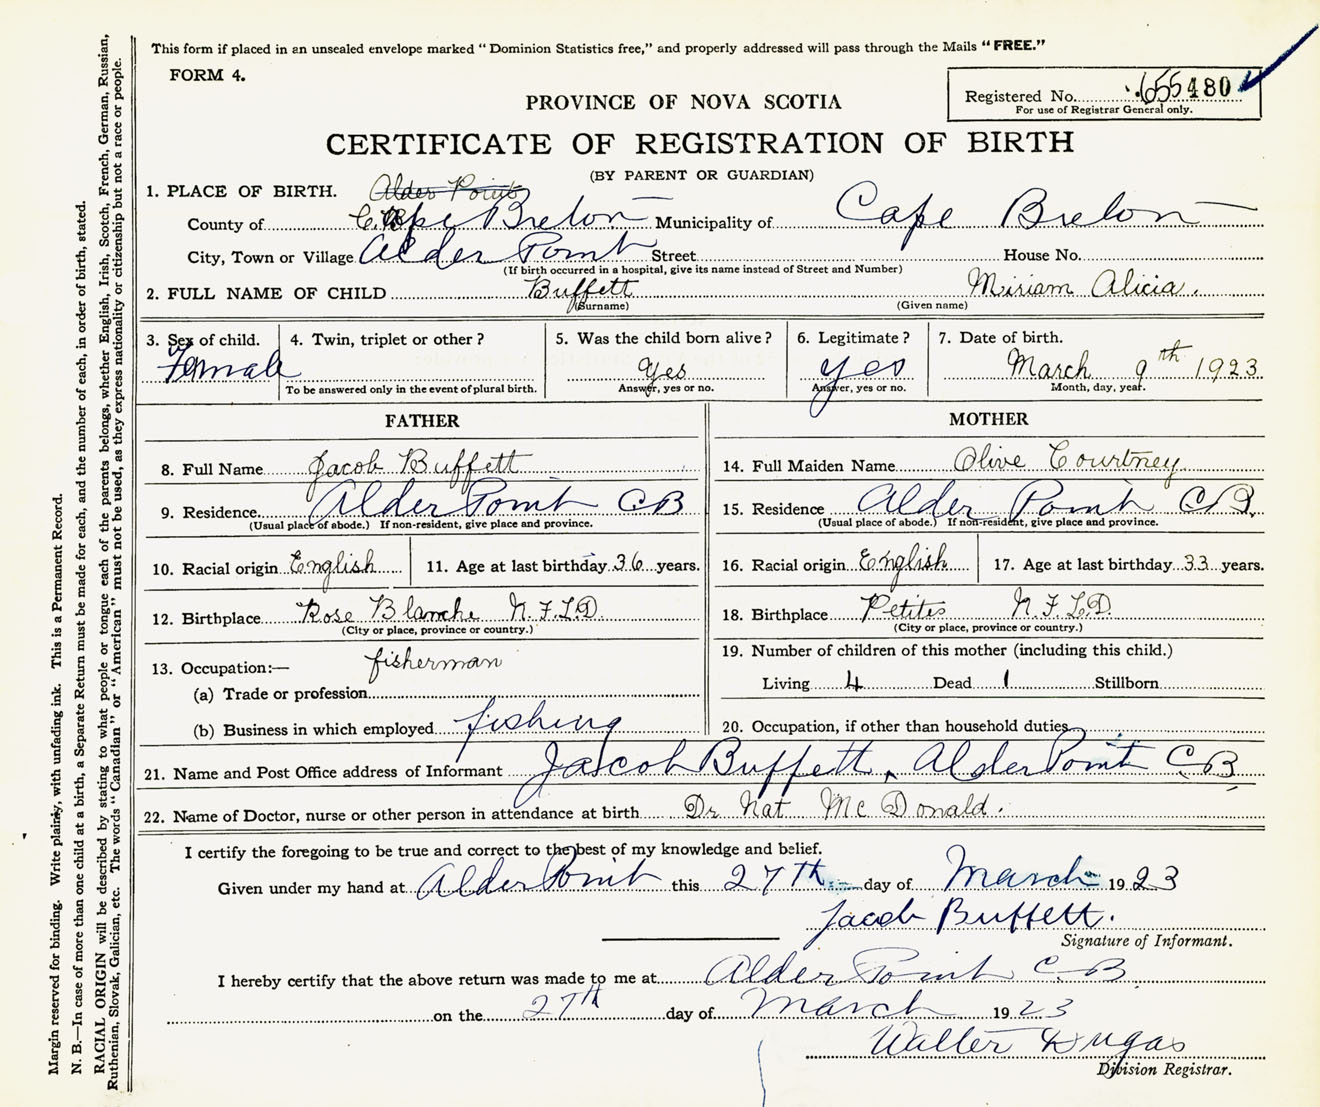 This form if placed in an unsealed envelope marked "Dominion Statistics free," and properly addressed will pass through the Mails "FREE."
FORM 4.
Registered No. 655480
For use of Registrar General only.
PROVINCE OF NOVA SCOTIA
CERTIFICATE OF REGISTRATION OF BIRTH
(BY PARENT OR GUARDIAN)
1. PLACE OF BIRTH. Alder Point
County of Cape Breton Municipality of Cape Breton
City, Town or Village Alder Point Street House No.
(If birth occurred in a hospital, give its name instead of Street and Number)
2. FULL NAME OF CHILD Buffett Miriam Alicia.
(Surname) (Given name)
3. Sex of child. 4. Twin, triplet or other? 5. Was the child born alive? 6. Legitimate? 7. Date of birth.
Female Yes yes March 9th 1923
To be answered only in the event of plural birth. Answer, yes or no. Answer, yes or no. Month, day, year.
FATHER MOTHER
8. Full Name Jacob Buffett 14. Full Maiden Name Olive Courtney
9. Residence. Alder Point CB 15. Residence Alder Point CB
(Usual place of abode.) If non-resident, give place and province. (Usual place of abode.) If non-resident, give place and province.
10. Racial origin English 11. Age at last birthday 36 years. 16. Racial origin English 17. Age at last birthday 33 years.
12. Birthplace Rose Blanche N.F.L.D. 18. Birthplace Petites N.F.L.D.
(City or place, province or country.) (City or place, province or country.)
13. Occupation:— fisherman 19. Number of children of this mother (including this child.)
(a) Trade or profession Living 4 Dead 1 Stillborn
(b) Business in which employed fishing 20. Occupation, if other than household duties
21. Name and Post Office address of Informant Jacob Buffett, Alder Point C.B
22. Name of Doctor, nurse or other person in attendance at birth Dr Nat McDonald.
I certify the foregoing to be true and correct to the best of my knowledge and belief.
Given under my hand at Alder Point this 27th day of March 1923
Jacob Buffett.
Signature of Informant.
I hereby certify that the above return was made to me at Alder Point C-B
on the 27th day of March 1923
Walter Dugas
Division Registrar.
Margin reserved for binding. Write plainly, with unfading ink. This is a Permanent Record.
N. B.—In case of more than one child at a birth, a Separate Return must be made for each, and the number of each, in order of birth, stated.
RACIAL ORIGIN will be described by stating to what people or tongue each of the parents belongs, whether English, Irish, Scotch, French, German, Russian,
Ruthenian, Slovak, Galician, etc. The words "Canadian" or "American" must not be used, as they express nationality or citizenship but not a race or people.